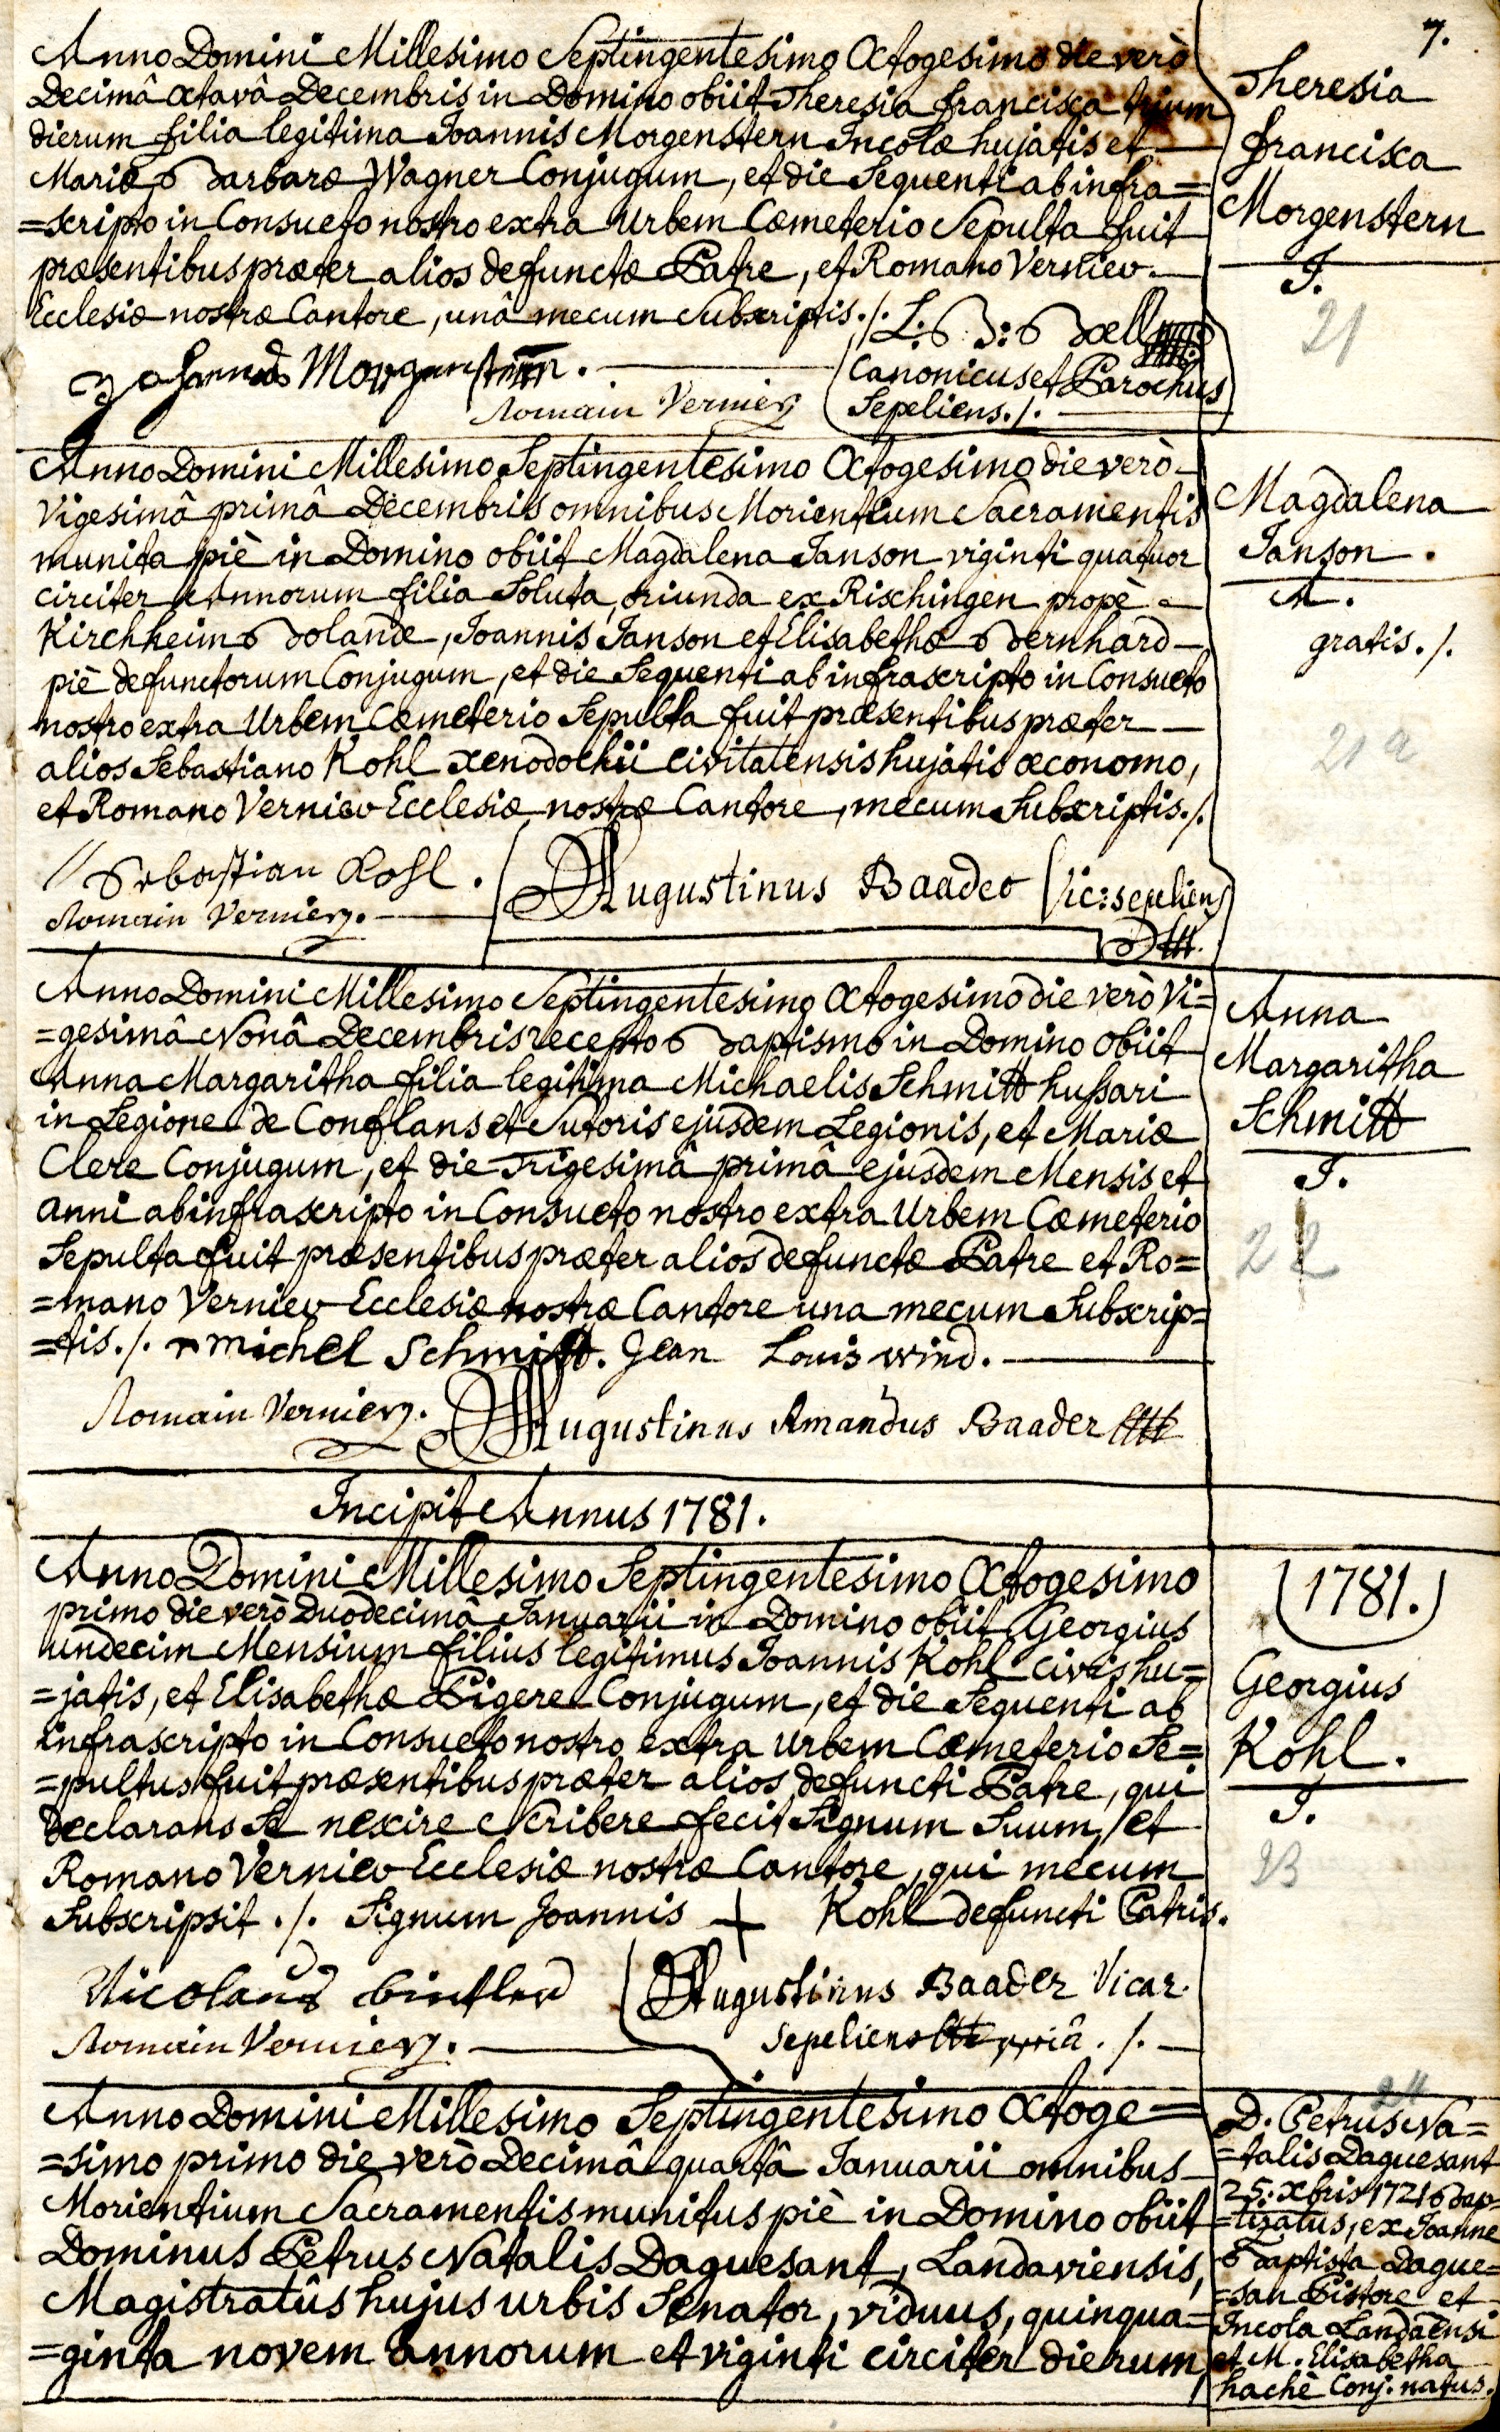 7.
Anno Domini Millesimo Septingentesimo Octogesimo die verò
Decimâ octavâ Decembris in Domino obiit Theresia francisca trium
dierum filia legitima Joannis Morgenstern Incolæ hujatis et
Mariæ Barbaræ Wagner Conjugum, et die Sequenti ab infra=
=scripto in Consueto nostro extra Urbem Cœmeterio Sepulta fuit
præsentibus præter alios defunctæ Patre, et Romano Vernier
Ecclesiæ nostræ Cantore, unâ mecum Subscriptis./.
Johannes Morgenstern.
Romain Vernier
Canonicus et Parochus
Sepeliens./.
Theresia
francisca
Morgenstern
J.
21
Anno Domini Millesimo Septingentesimo Octogesimo die verò
Vigesimâ primâ Decembris omnibus Morientium Sacramentis
munita piè in Domino obiit Magdalena Janson viginti quatuor
circiter Annorum filia Soluta, oriunda ex Rischingen propè
Kirchheim Bolande, Joannis Janson et Elisabethæ Bernhard
piè defunctorum Conjugum, et die Sequenti ab infrascripto in Consueto
nostro extra Urbem Cœmeterio Sepulta fuit præsentibus præter
alios Sebastiano Kohl xenodochii civitatensis hujatis œconomo,
et Romano Vernier Ecclesiæ nostræ Cantore, mecum Subscriptis./.
Sebastian Kohl.
Romain Vernier.
Augustinus Baader Vic: sepeliens
Magdalena
Janson.
A.
gratis./.
21 a
Anno Domini Millesimo Septingentesimo Octogesimo die verò Vi=
=gesimâ Nonâ Decembris recepto Baptismo in Domino obiit
Anna Margaritha filia legitima Michaelis Schmitt hussari
in Legione de Conflans et Sutoris ejusdem Legionis, et Mariæ
Clere Conjugum, et die Trigesimâ primâ ejusdem Mensis et
anni ab infrascripto in Consueto nostro extra Urbem Cœmeterio
Sepulta fuit præsentibus præter alios defunctæ Patre et Ro=
=mano Vernier Ecclesiæ nostræ Cantore una mecum Subscrip=
=tis./. michel Schmitt. Jean Louis wind.
Romain Vernier.
Augustinus Amandus Baader
Anna
Margaritha
Schmitt
J.
22
Incipit Annus 1781.
Anno Domini Millesimo Septingentesimo Octogesimo
primo die verò Duodecimâ Januarii in Domino obiit Georgius
undecim Mensium filius legitimus Joannis Kohl civis hu=
=jatis, et Elisabethæ Pigere Conjugum, et die Sequenti ab
infrascripto in Consueto nostro extra Urbem Cœmeterio Se=
=pultus fuit præsentibus præter alios defuncti Patre, qui
declarans Se nescire Scribere fecit Signum Suum, et
Romano Vernier Ecclesiæ nostræ Cantore, qui mecum
Subscripsit./. Signum Joannis + Kohl defuncti Patris.
Nicolaus
Romain Vernier.
Augustinus Baader Vicar.
Sepeliens
1781.
Georgius
Kohl.
J.
23
Anno Domini Millesimo Septingentesimo Octoge=
=simo primo die verò Decimâ quartâ Januarii omnibus
Morientium Sacramentis munitus piè in Domino obiit
Dominus Petrus Natalis Daguesant, Landaviensis,
Magistratûs hujus urbis Senator, viduus, quinqua=
=ginta novem annorum et viginti circiter dierum,
24
D. Petrus Na=
=talis Daguesant
25. Xbris 1721 Bap=
=tizatus, ex Joanne
Baptista Dague=
=san Pistore et
Incola Landaensi
et M. Elisabetha
hachè Conj. natus.